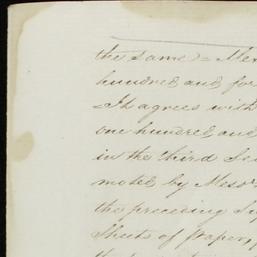 the same = Mex
hundred and for
= It agrees with
one hundred and
in the third Se
moted by Messrs
the preceding Si
Sheets of Paper,